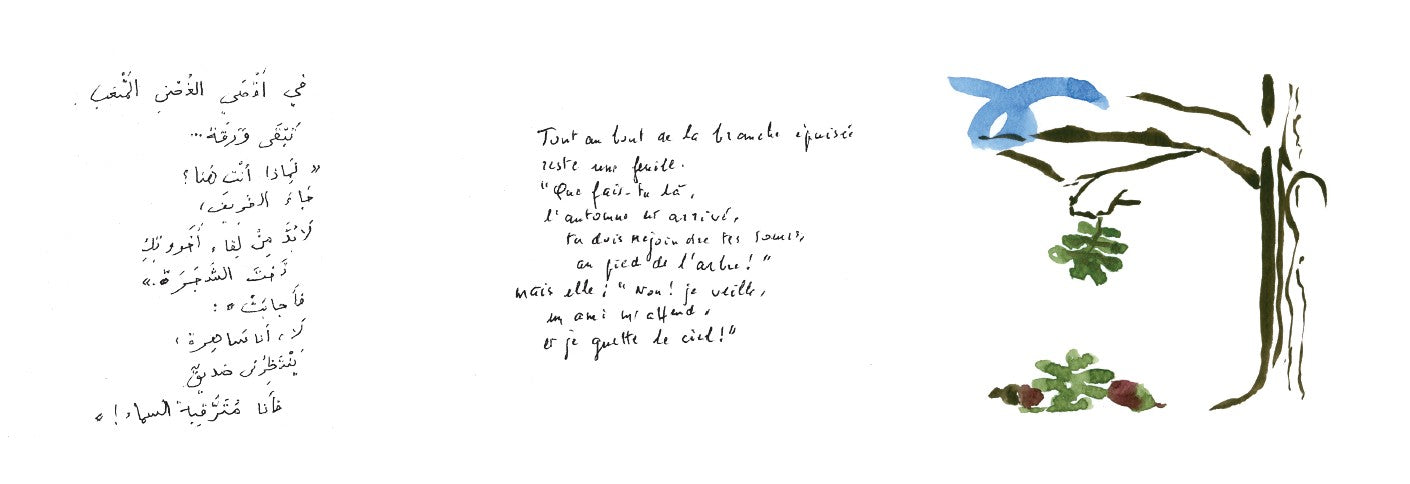 في أَقْصَى الغُصْنِ المُتْعَبِ .
تَبْقَى وَرَقَة...
« لِمَاذا أنْتِ هُنا ؟
جَاءَ الخَرِيفُ،
لَابُدَّ مِنْ لِقَاءِ أَخَوَاتِكِ
تَحْتَ الشَّجَرَة.»
فَأجابَتْ « :
لَا، أنا سَاهِرة،
يَنْتَظِرُنِي صَدِيقٌ
فأنا مُتَرَقِّبة السماء ! »
Tout au bout de la branche épuisée
reste une feuille.
"Que fais-tu là,
l'automne est arrivé,
tu dois rejoindre tes soeurs,
au pied de l'arbre !"
mais elle : "Non ! je veille,
un ami m'attend,
et je guette le ciel !"